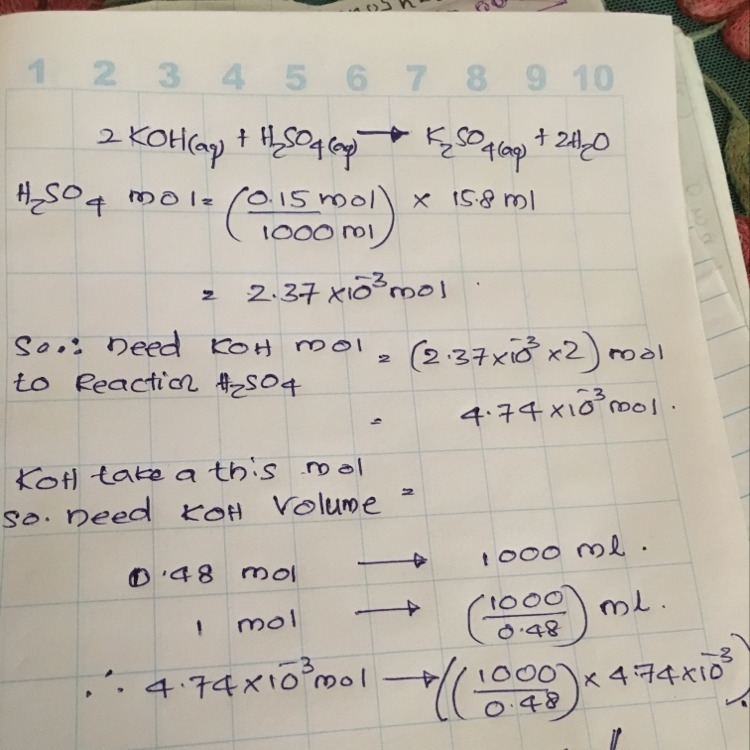 1 2 3 4 5 6 7 8 9 10
2 KOH(aq) + H₂SO₄(aq) → K₂SO₄(aq) + 2H₂O
H₂SO₄ mol = (0.15 mol / 1000 ml) × 15.8 ml
= 2.37 × 10⁻³ mol
So.: need KOH mol = (2.37 × 10⁻³ × 2) mol
to Reaction H₂SO₄
= 4.74 × 10⁻³ mol.
KOH take a this mol
so. need KOH Volume =
0.48 mol → 1000 ml.
1 mol → (1000 / 0.48) ml.
∴ 4.74 × 10⁻³ mol → ((1000 / 0.48) × 4.74 × 10⁻³)